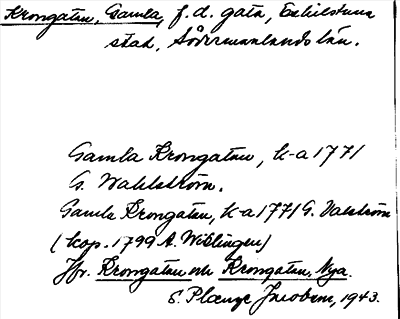 Krongatan, Gamla, f.d. gata, Eskilstuna
stad, Södermanlands län.
Gamla Krongatan, k-a 1771
G. Wahlström.
Gamla Krongatan, k-a 1771 G. Valström
(kop. 1799 A. Wiblingen)
Jfr. Krongatan och Krongatan, Nya.
S. Plænge Jacobson, 1943.